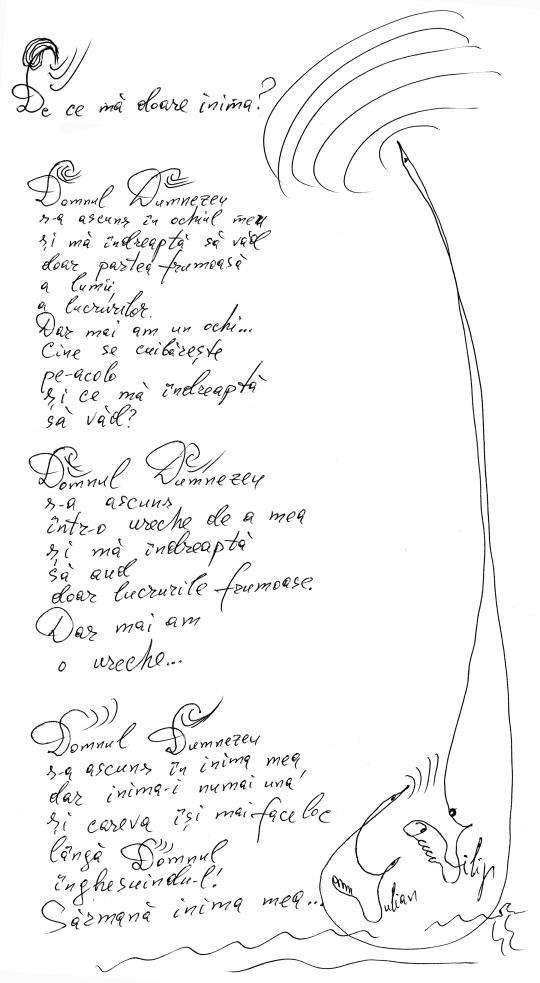 De ce mă doare inima?
Domnul Dumnezeu
s-a ascuns în ochiul meu
și mă îndreaptă să văd
doar partea frumoasă
a lumii
a lucrurilor.
Dar mai am un ochi...
Cine se cuibărește
pe-acolo
și ce mă îndreaptă
să văd?
Domnul Dumnezeu
s-a ascuns
într-o ureche de a mea
și mă îndreaptă
să aud
doar lucrurile frumoase.
Dar mai am
o ureche...
Domnul Dumnezeu
s-a ascuns în inima mea,
dar inima-i numai una,
și careva își mai face loc
lângă Domnul
înghesuindu-l!
Sărmană inima mea...
Iulian
Filip